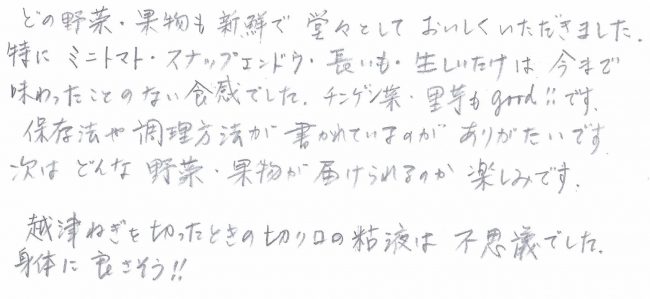 どの野菜・果物も新鮮で堂々としておいしくいただきました。
特にミニトマト・スナップエンドウ・長いも・生しいたけは今まで
味わったことのない食感でした。チンゲン菜・里芋もgood!!です。
保存法や調理方法が書かれているのがありがたいです
次はどんな野菜・果物が届けられるのか楽しみです。
越津ねぎを切ったときの切り口の粘液は不思議でした。
身体に良さそう!!